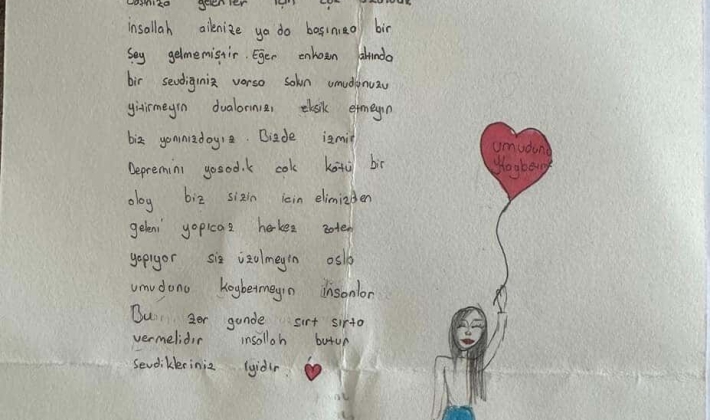 başınıza gelenler için çok üzüldük
insallah ailenize ya da başınıza bir
Şey gelmemiştir. Eğer enkazın altında
bir sevdiğiniz varsa sakın umudunuzu
yitirmeyin dualarınızı eksik etmeyin
biz yanınızdayız. Bizde izmir
Depremini yasadık cok kötü bir
olay biz sizin icin elimizden
geleni yapıcaz herkez zaten
yapıyor siz üzülmeyin asla
umudunu kaybetmeyin insanlar
Bu zor gunde sırt sırta
vermelidir insallah butun
Sevdikleriniz iyidir.
umudunu
Kaybetme